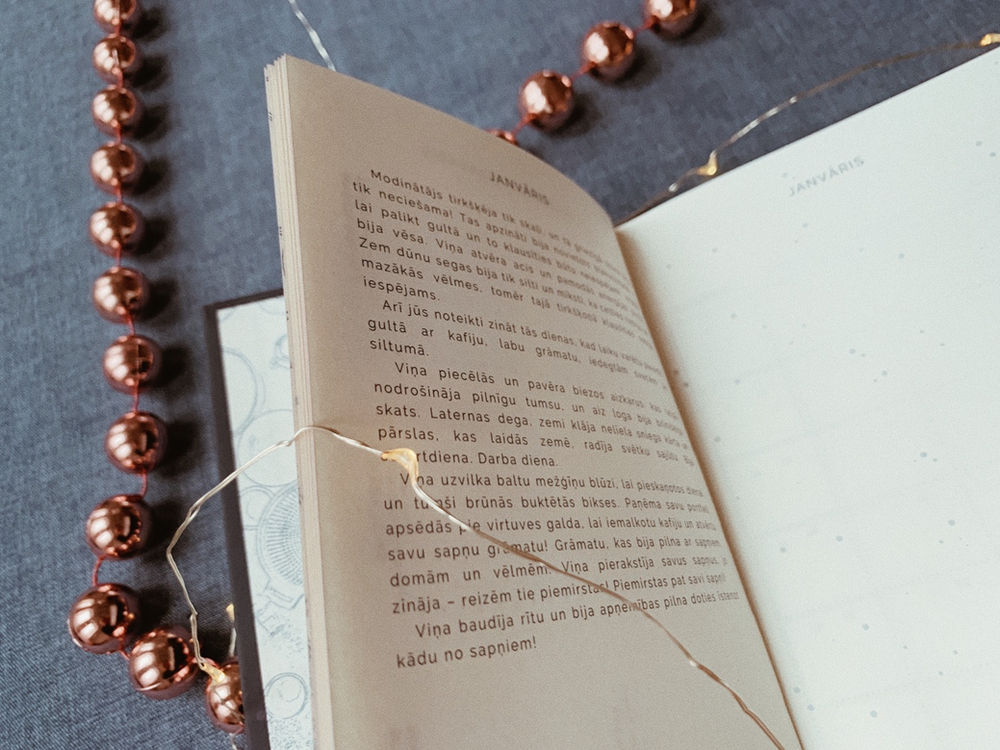 JANVĀRIS
Modinātājs tirkšķēja tik skaļi, un tā
tik neciešama! Tas apzināti bija novietots
lai palikt gultā un to klausīties būtu neiespējami.
bija vēsa. Viņa atvēra acis un pamodās
Zem dūnu segas bija tik silti un mīksti, ka
mazākās vēlmes, tomēr tajā tirkšķoņā klausīties
iespējams.
Arī jūs noteikti zināt tās dienas, kad laiku
gultā ar kafiju, labu grāmatu, iedegtām svecēm
siltumā.
Viņa piecēlās un pavēra biezos aizkarus, kas
nodrošināja pilnīgu tumsu, un aiz loga bija
skats. Laternas dega, zemi klāja neliela sniega kārta
pārslas, kas laidās zemē, radīja svētku sajūtu. Bija
Darba diena.
Viņa uzvilka baltu mežģīņu blūzi, lai pieskaņotos diena
un tumši brūnās buktētās bikses. Paņēma savu portfeli,
apsēdās pie virtuves galda, lai iemalkotu kafiju un atvērtu
savu sapņu grāmatu! Grāmatu, kas bija pilna ar sapņiem,
domām un vēlmēm. Viņa pierakstīja savus sapņus, jo
zināja – reizēm tie piemirstas! Piemirstas pat savi sapņi!
Viņa baudīja rītu un bija apņēmības pilna doties īstenot
kādu no sapņiem!
JANVĀRIS